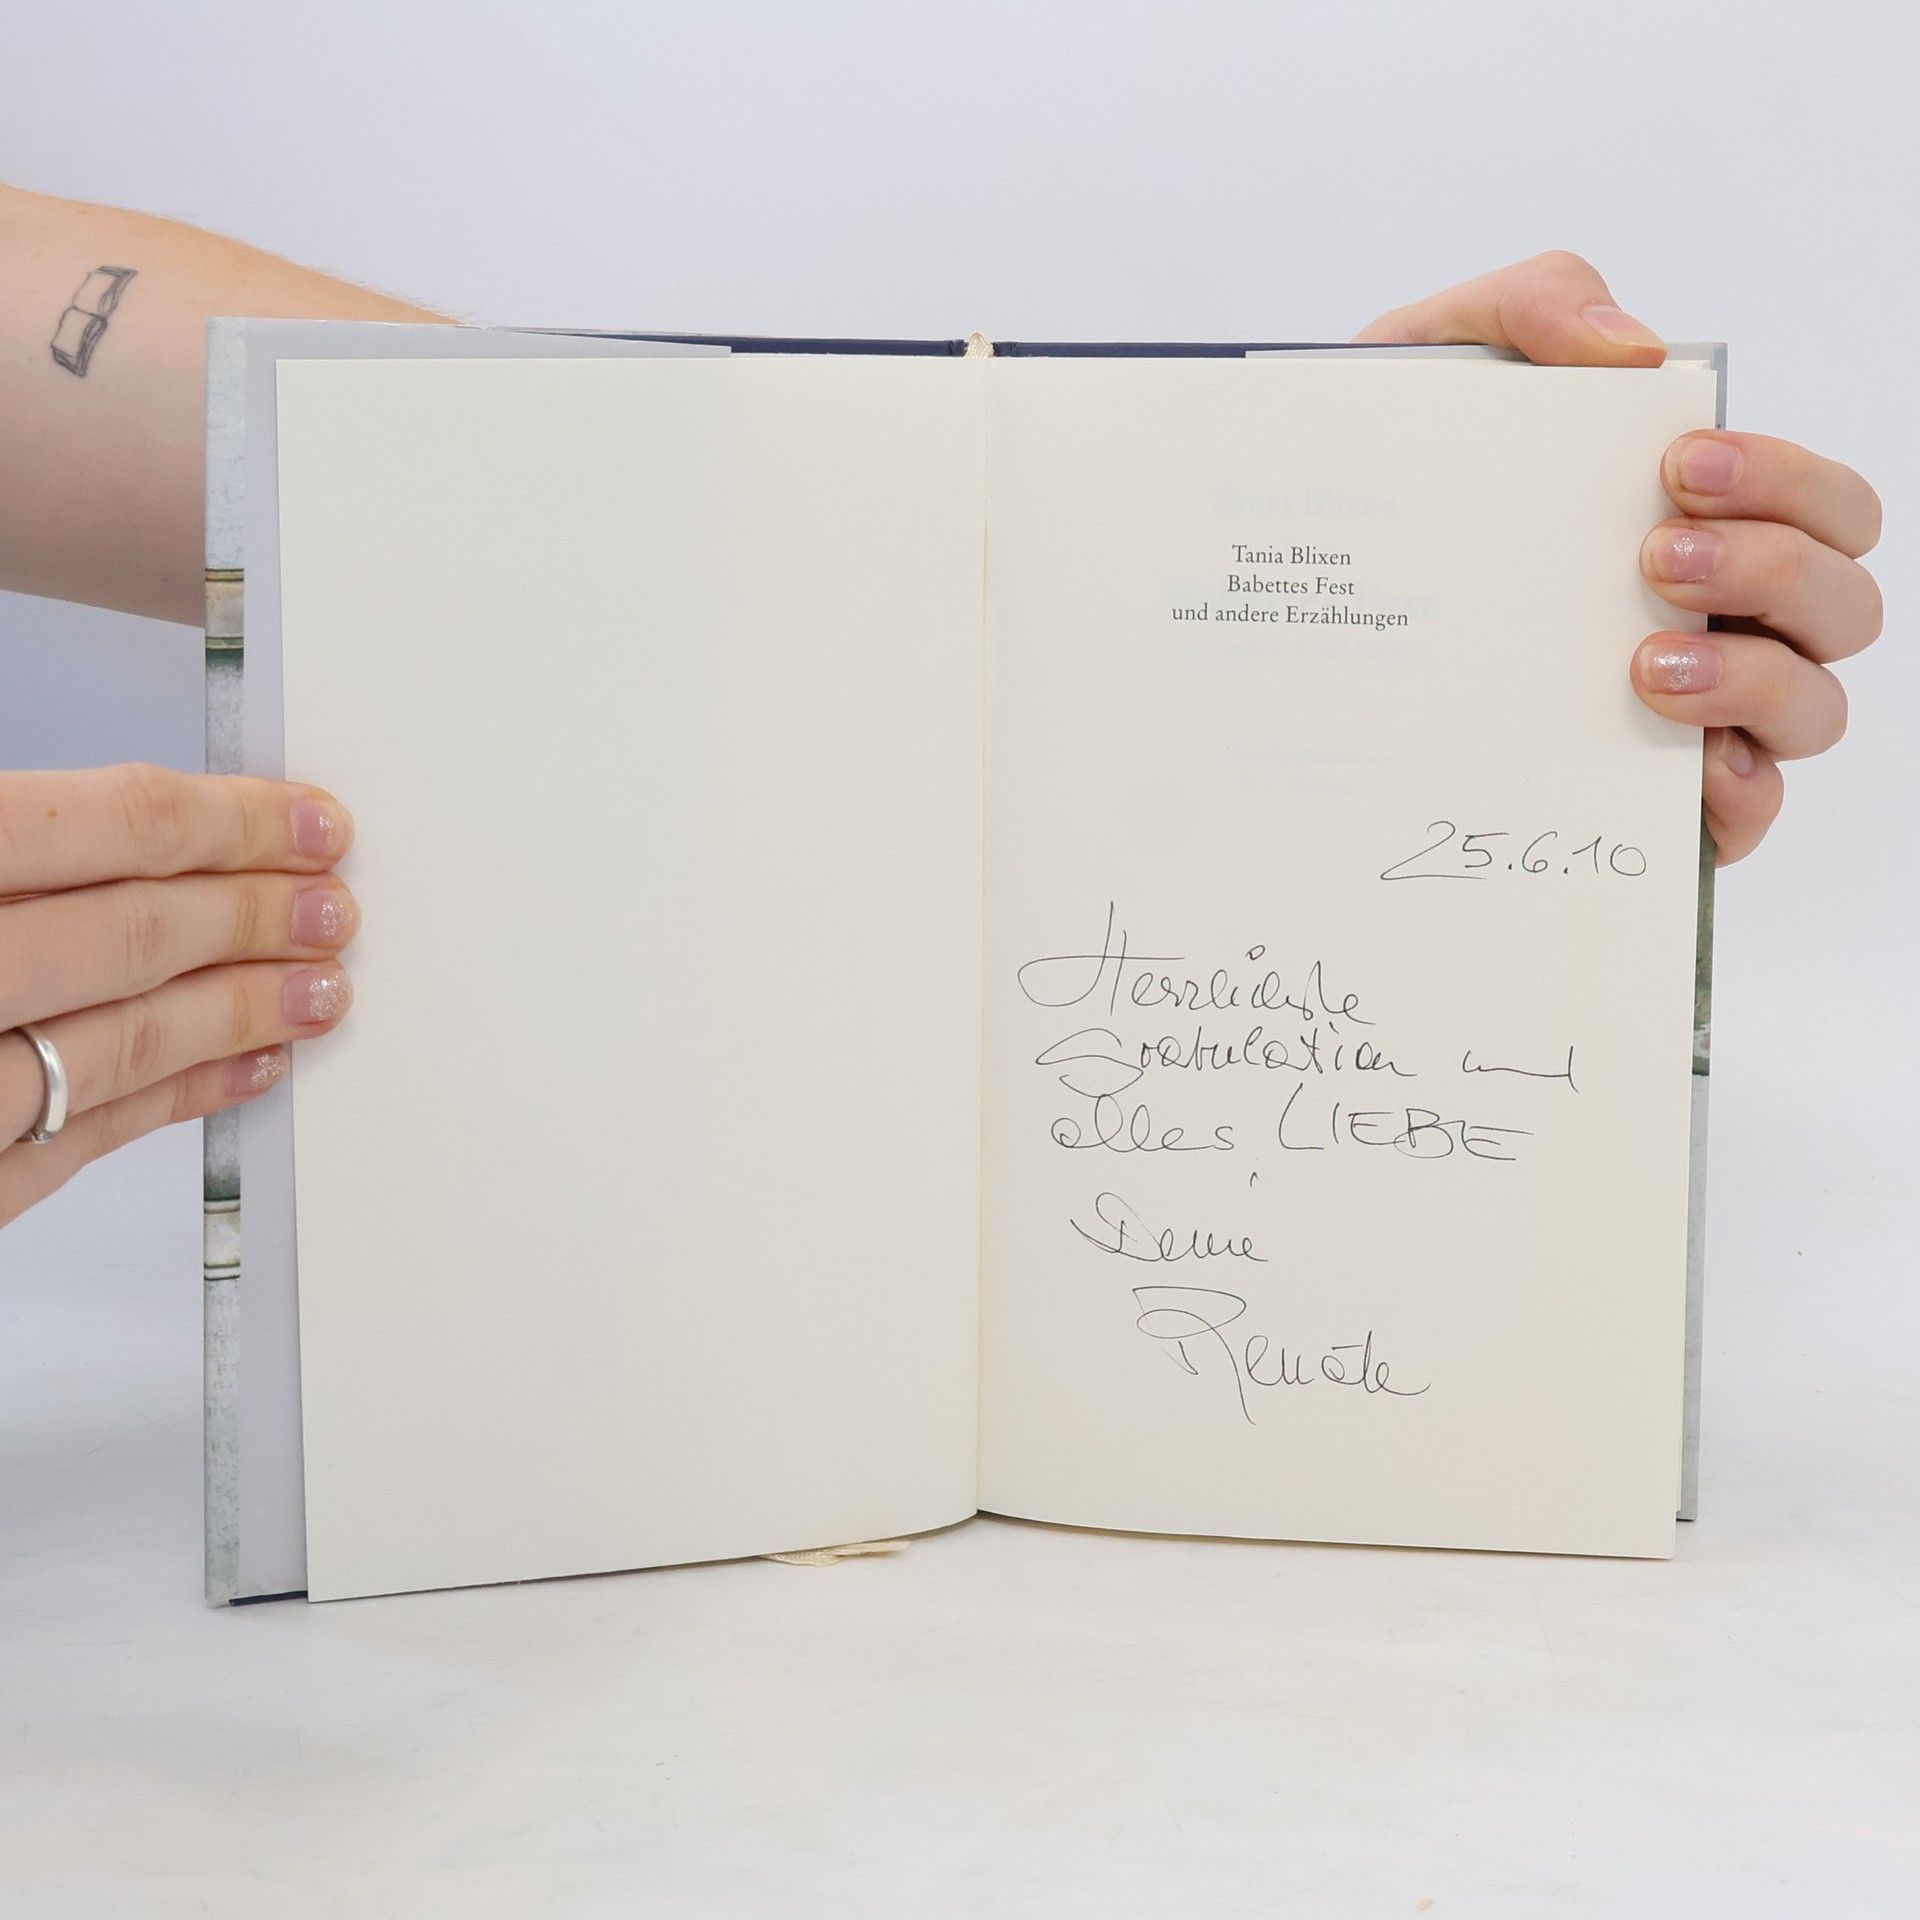 Tania Blixen
Babettes Fest
und andere Erzählungen
25.6.10
Herzlichste
Gratulation und
alles LIEBE
Deine
Renate